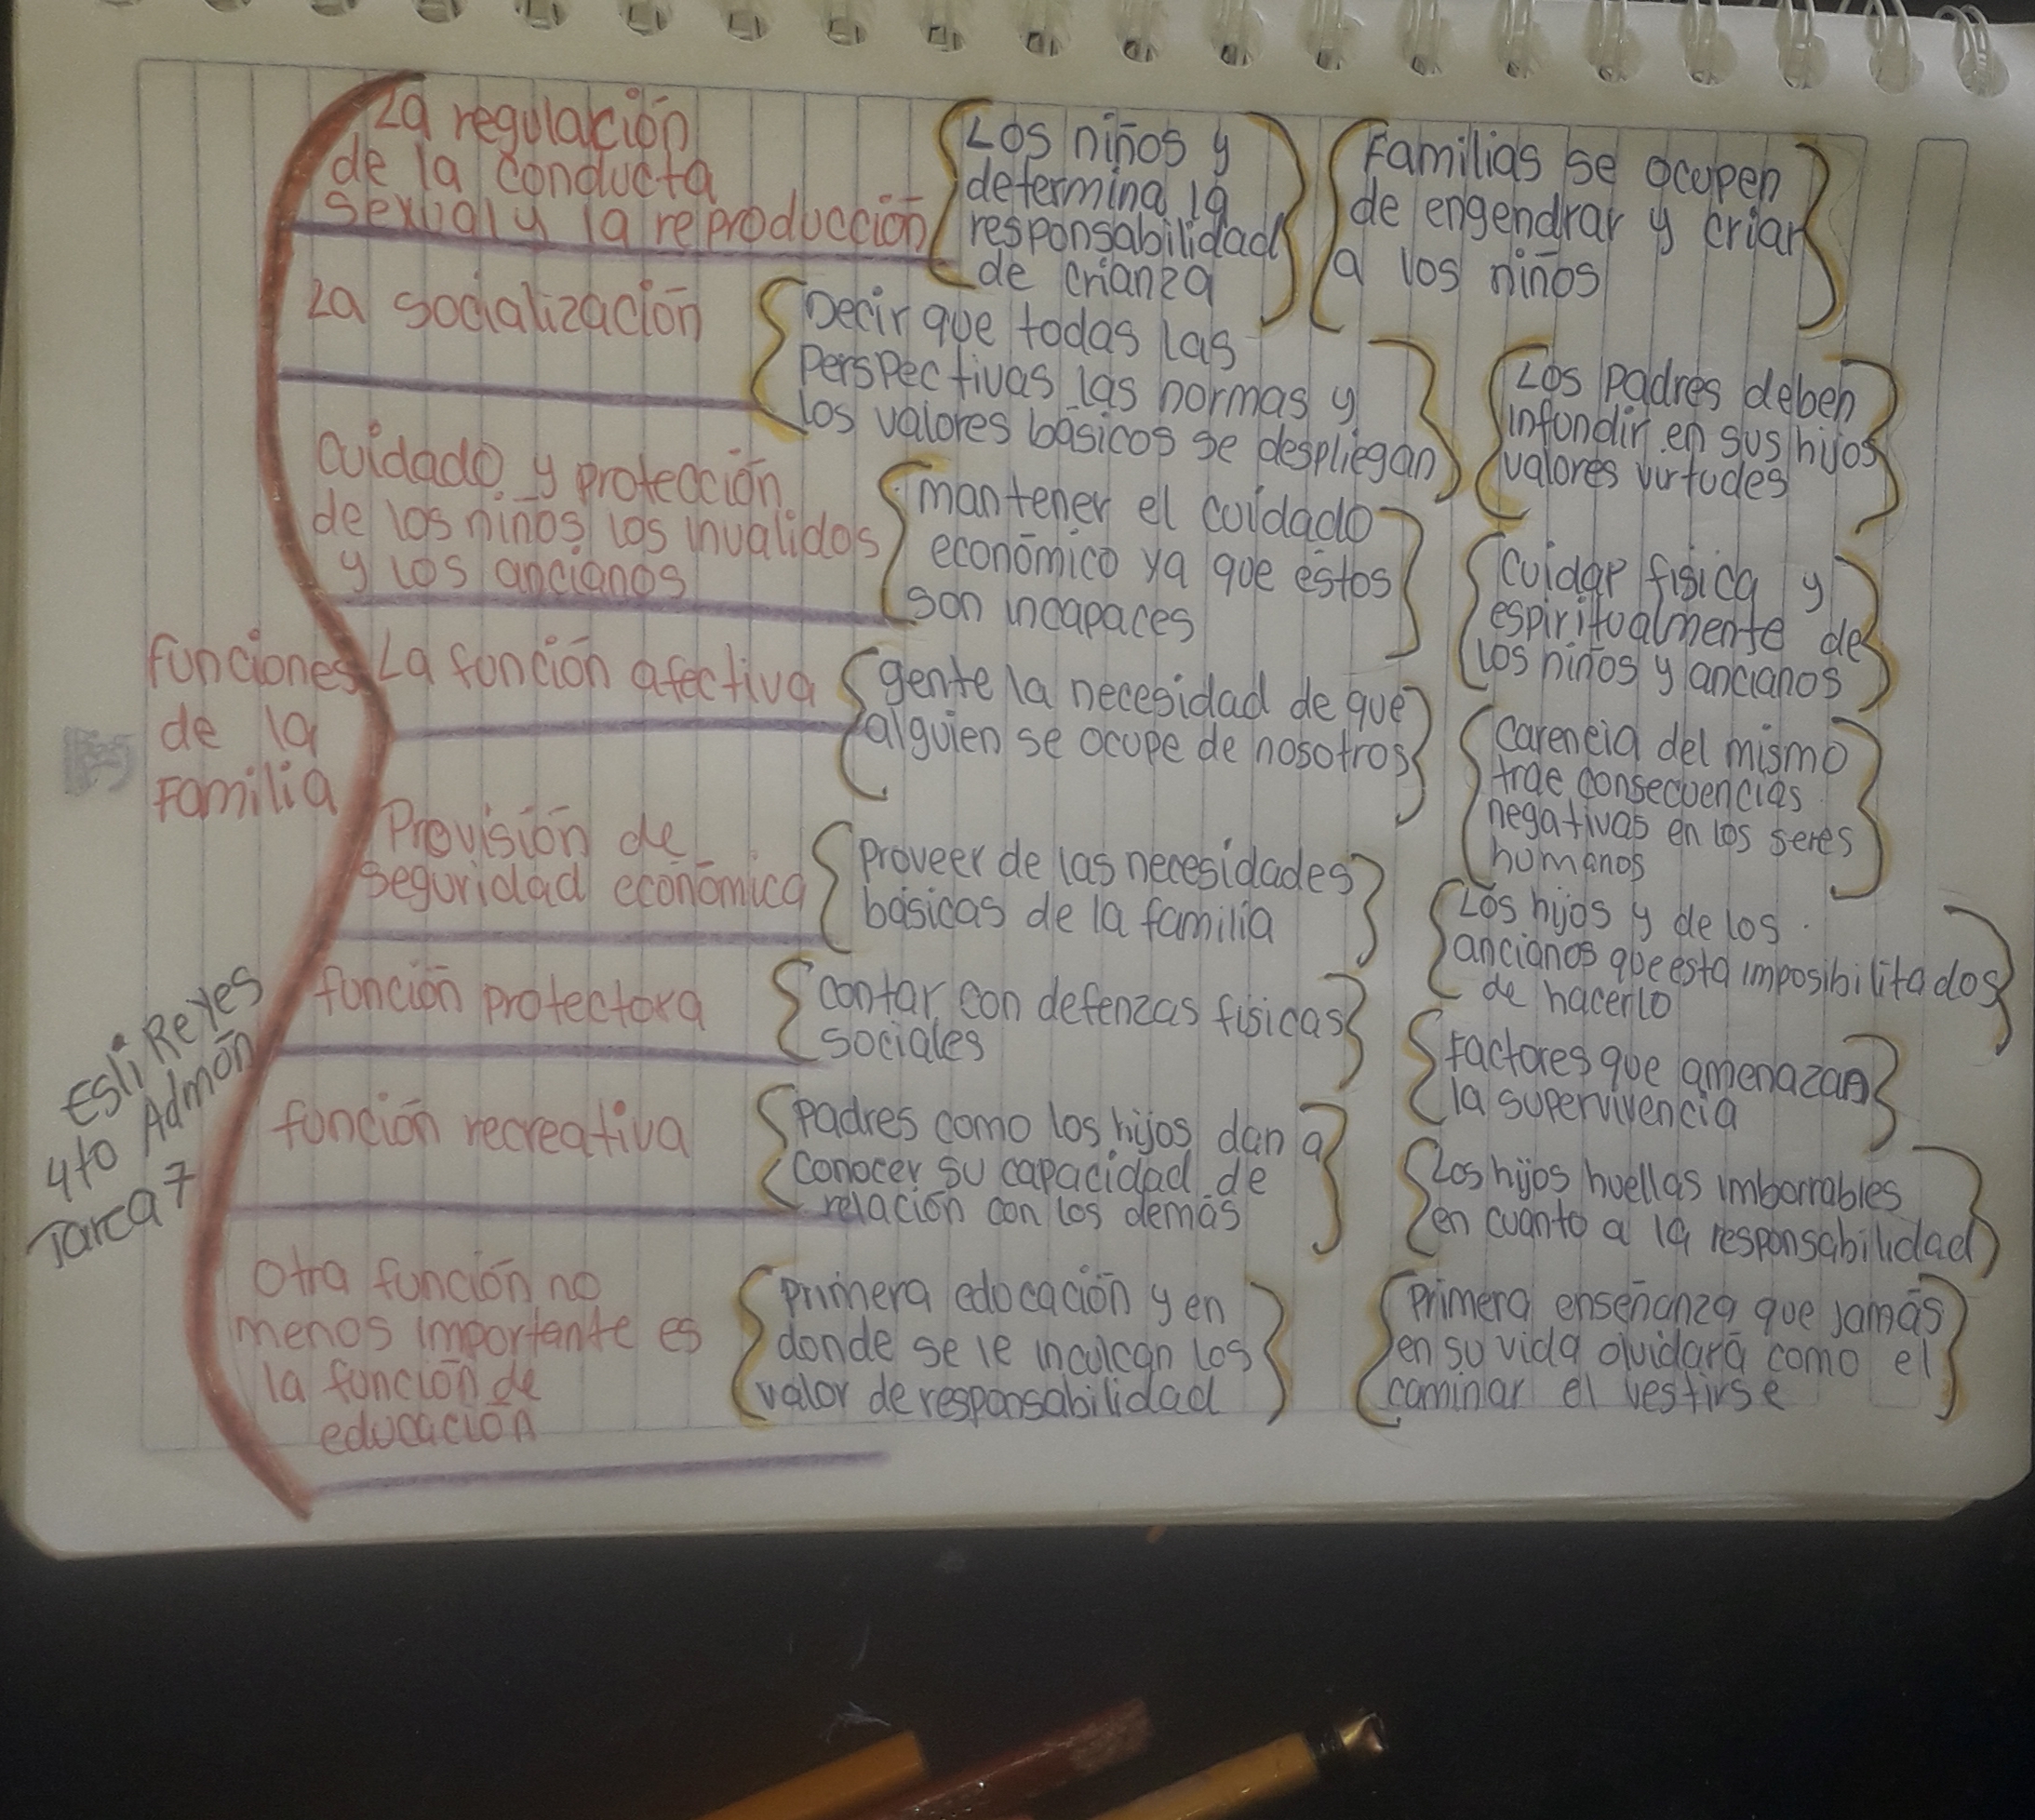 La regulación
de la conducta
sexual y la reproducción
Los niños y
determina la
responsabilidad
de crianza
Familias se ocupen
de engendrar y criar
a los niños
La socialización
Decir que todas las
Perspectivas las normas y
los valores básicos se despliegan
Los padres deben
infundir en sus hijos
valores virtudes
Cuidado y protección
de los niños los invalidos
y los ancianos
mantener el cuidado
económico ya que estos
son incapaces
Cuidar fisica y
espiritualmente de
los niños y ancianos
funciones
de la
Familia
La función afectiva
gente la necesidad de que
alguien se ocupe de nosotros
Carencia del mismo
trae consecuencias
negativas en los seres
humanos
Provisión de
seguridad económica
Proveer de las necesidades
básicas de la familia
Los hijos y de los
ancianos que esta imposibilitados
de hacerlo
función protectora
contar con defenzas fisicas
sociales
Factores que amenazan
la supervivencia
función recreativa
Padres como los hijos dan a
conocer su capacidad de
relación con los demás
Los hijos huellas imborrables
en cuanto a la responsabilidad
Otra función no
menos importante es
la función de
educación
Primera educación y en
donde se le inculcan los
valor de responsabilidad
Primera enseñanza que jamás
en su vida olvidará como el
caminar el vestirse
Esli Reyes
4to Admón
Tarea 7